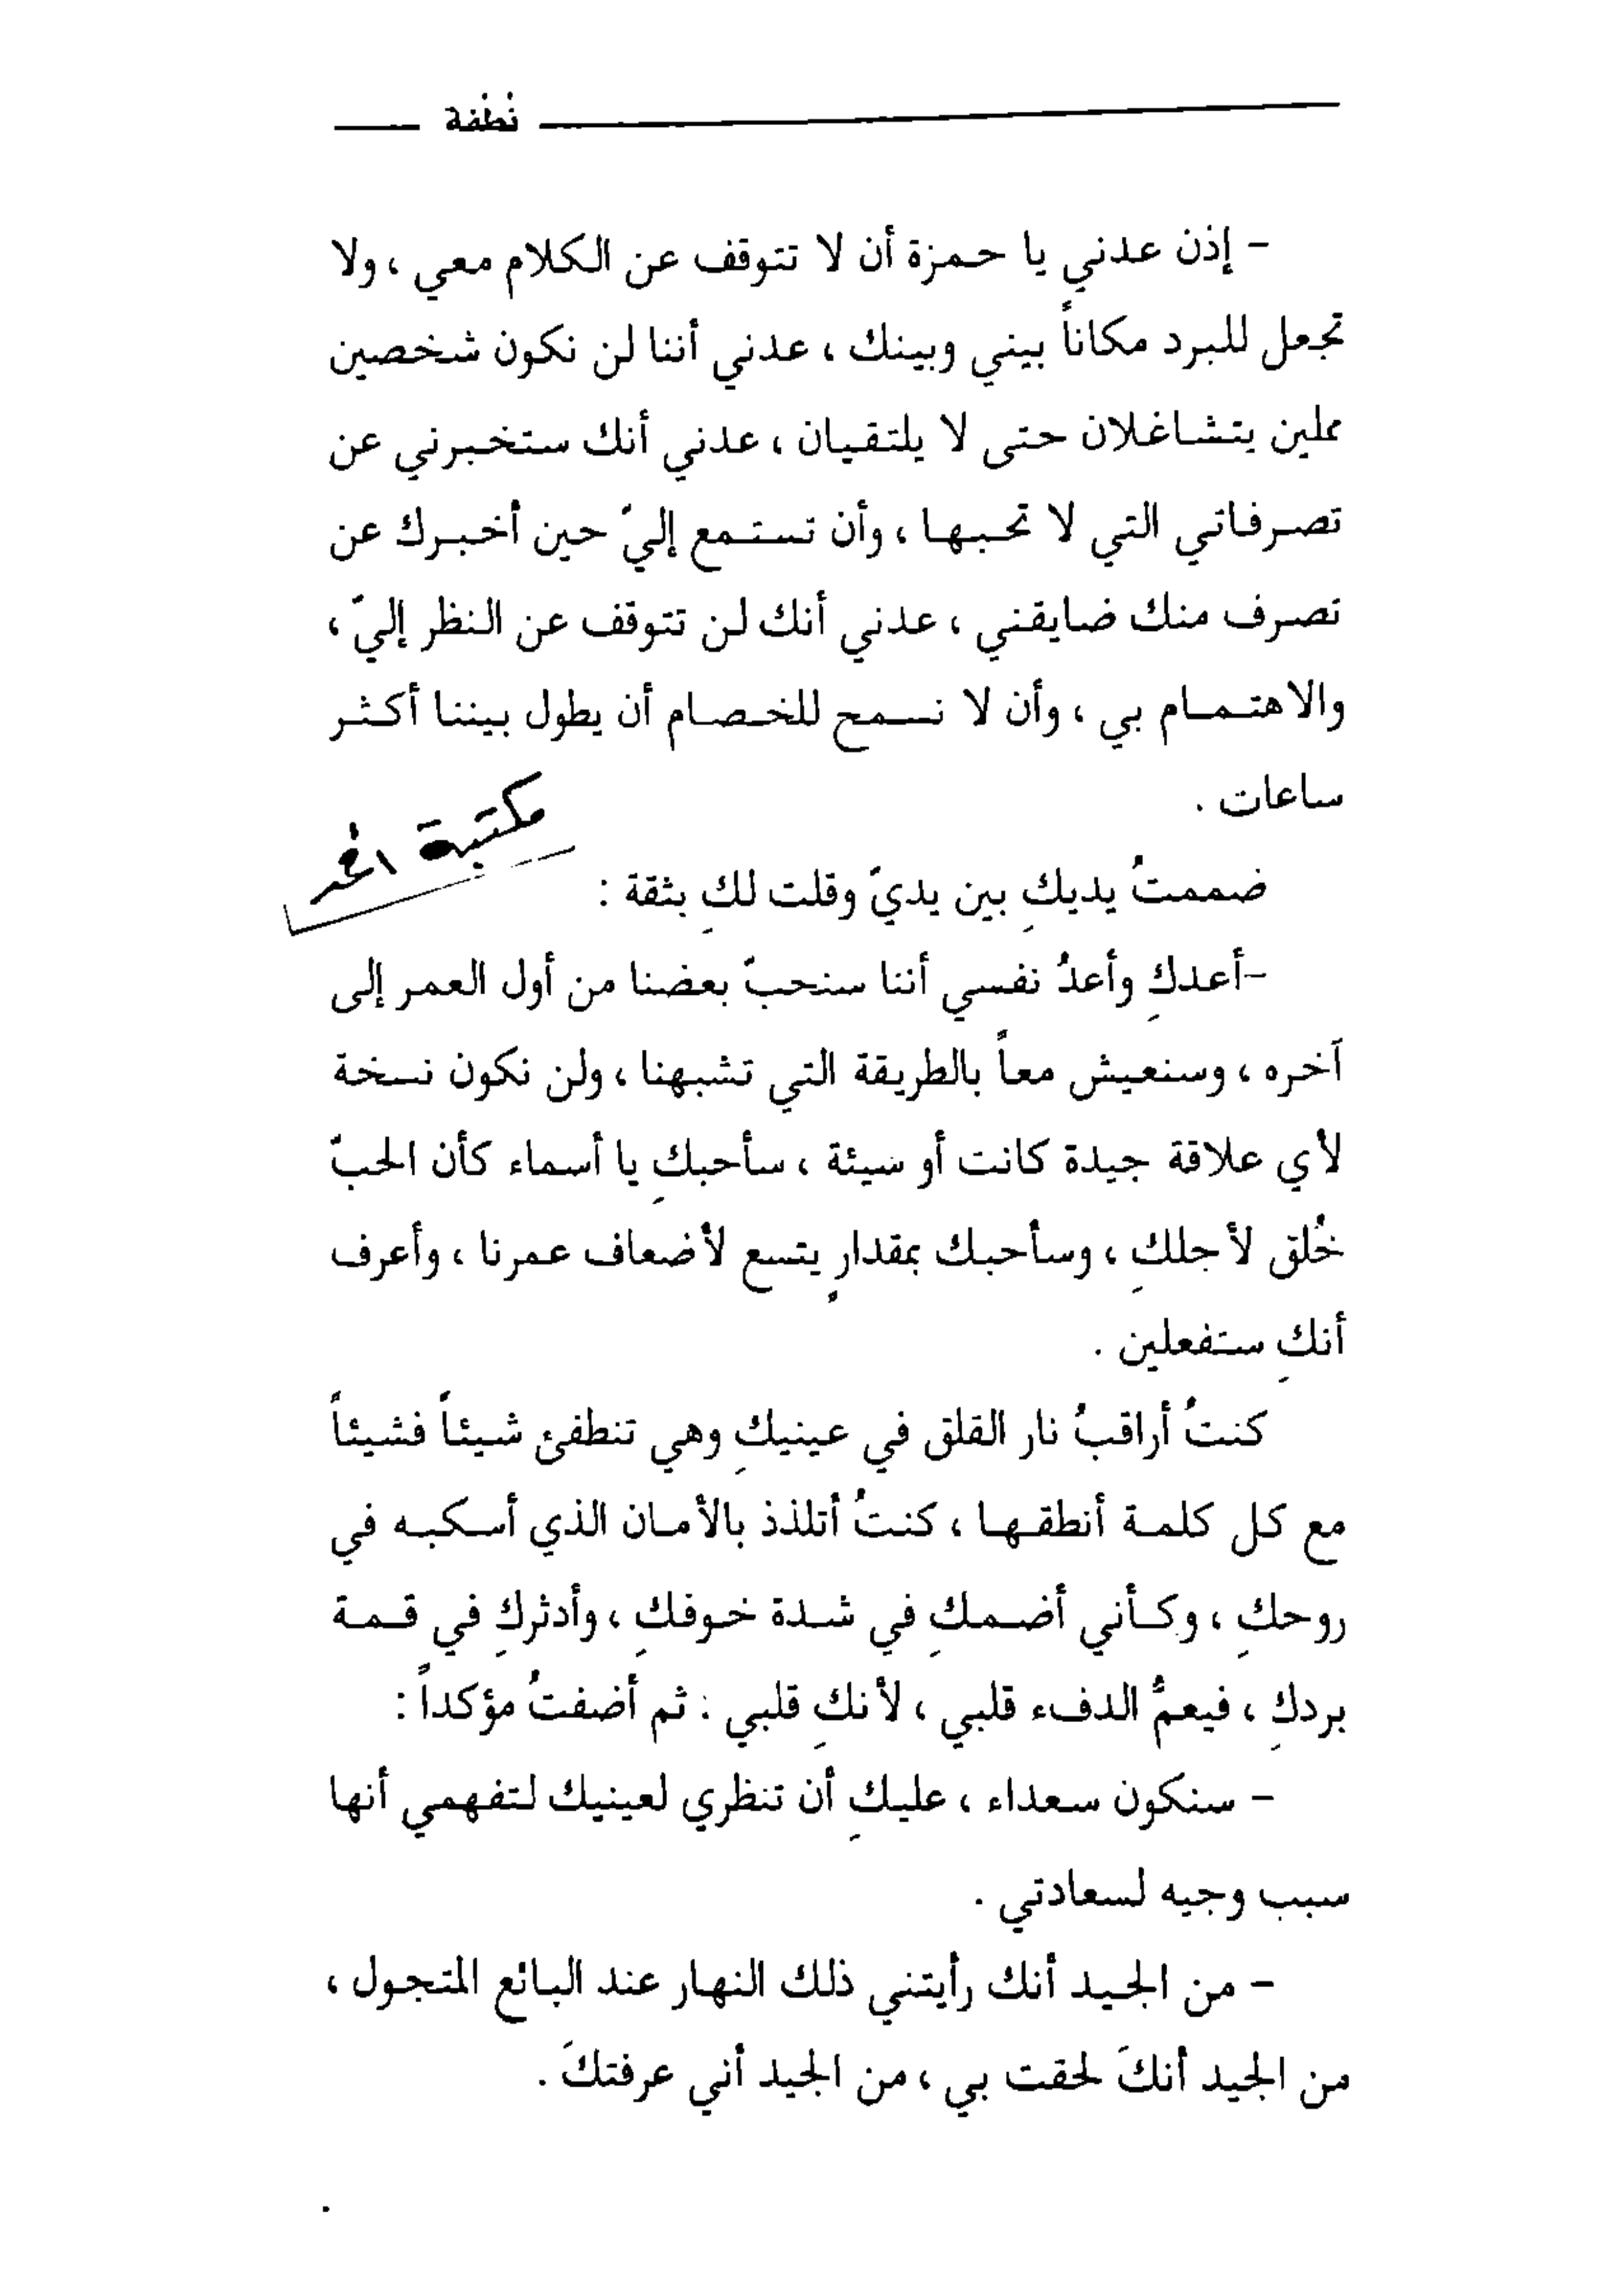 نُطْفة
- إذن عدني يا حمزة أن لا تتوقف عن الكلام معي ، ولا
تجعل للبرد مكاناً بيني وبينك ، عدني أننا لن نكون شخصين
مملين يتشاغلان حتى لا يلتقيان ، عدني أنك ستخبرني عن
تصرفاتي التي لا تحبها ، وأن تستمع إليّ حين أخبرك عن
تصرف منك ضايقني ، عدني أنك لن تتوقف عن النظر إليّ ،
والاهتمام بي ، وأن لا نسمح للخصام أن يطول بيننا أكثر
ساعات .
مكتبة
ضممتُ يديكِ بين يديّ وقلت لكِ بثقة :
-أعدكِ وأعدُ نفسي أننا سنحبّ بعضنا من أول العمر إلى
آخره ، وسنعيش معاً بالطريقة التي تشبهنا ، ولن نكون نسخة
لأي علاقة جيدة كانت أو سيئة ، سأحبكِ يا أسماء كأن الحبّ
خُلق لأجلكِ ، وسأحبك بمقدارٍ يتسع لأضعاف عمرنا ، وأعرف
أنكِ ستفعلين .
كنتُ أراقبُ نار القلق في عينيكِ وهي تنطفئ شيئاً فشيئاً
مع كل كلمة أنطقها ، كنتُ أتلذذ بالأمان الذي أسكبه في
روحكِ ، وكأني أضمكِ في شدة خوفكِ ، وأدثركِ في قمة
بردكِ ، فيعمُّ الدفء قلبي ، لأنكِ قلبي . ثم أضفتُ مؤكداً :
- سنكون سعداء ، عليكِ أن تنظري لعينيك لتفهمي أنها
سبب وجيه لسعادتي .
- من الجيد أنك رأيتني ذلك النهار عند البائع المتجول ،
من الجيد أنكَ لحقت بي ، من الجيد أني عرفتكَ .